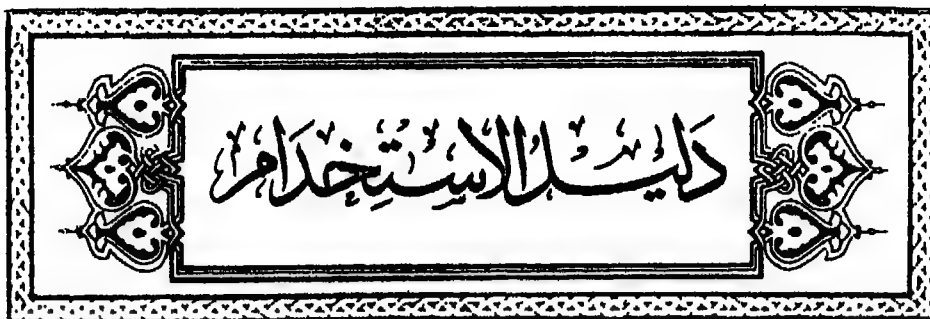 دَليل الاسِتِخدَام